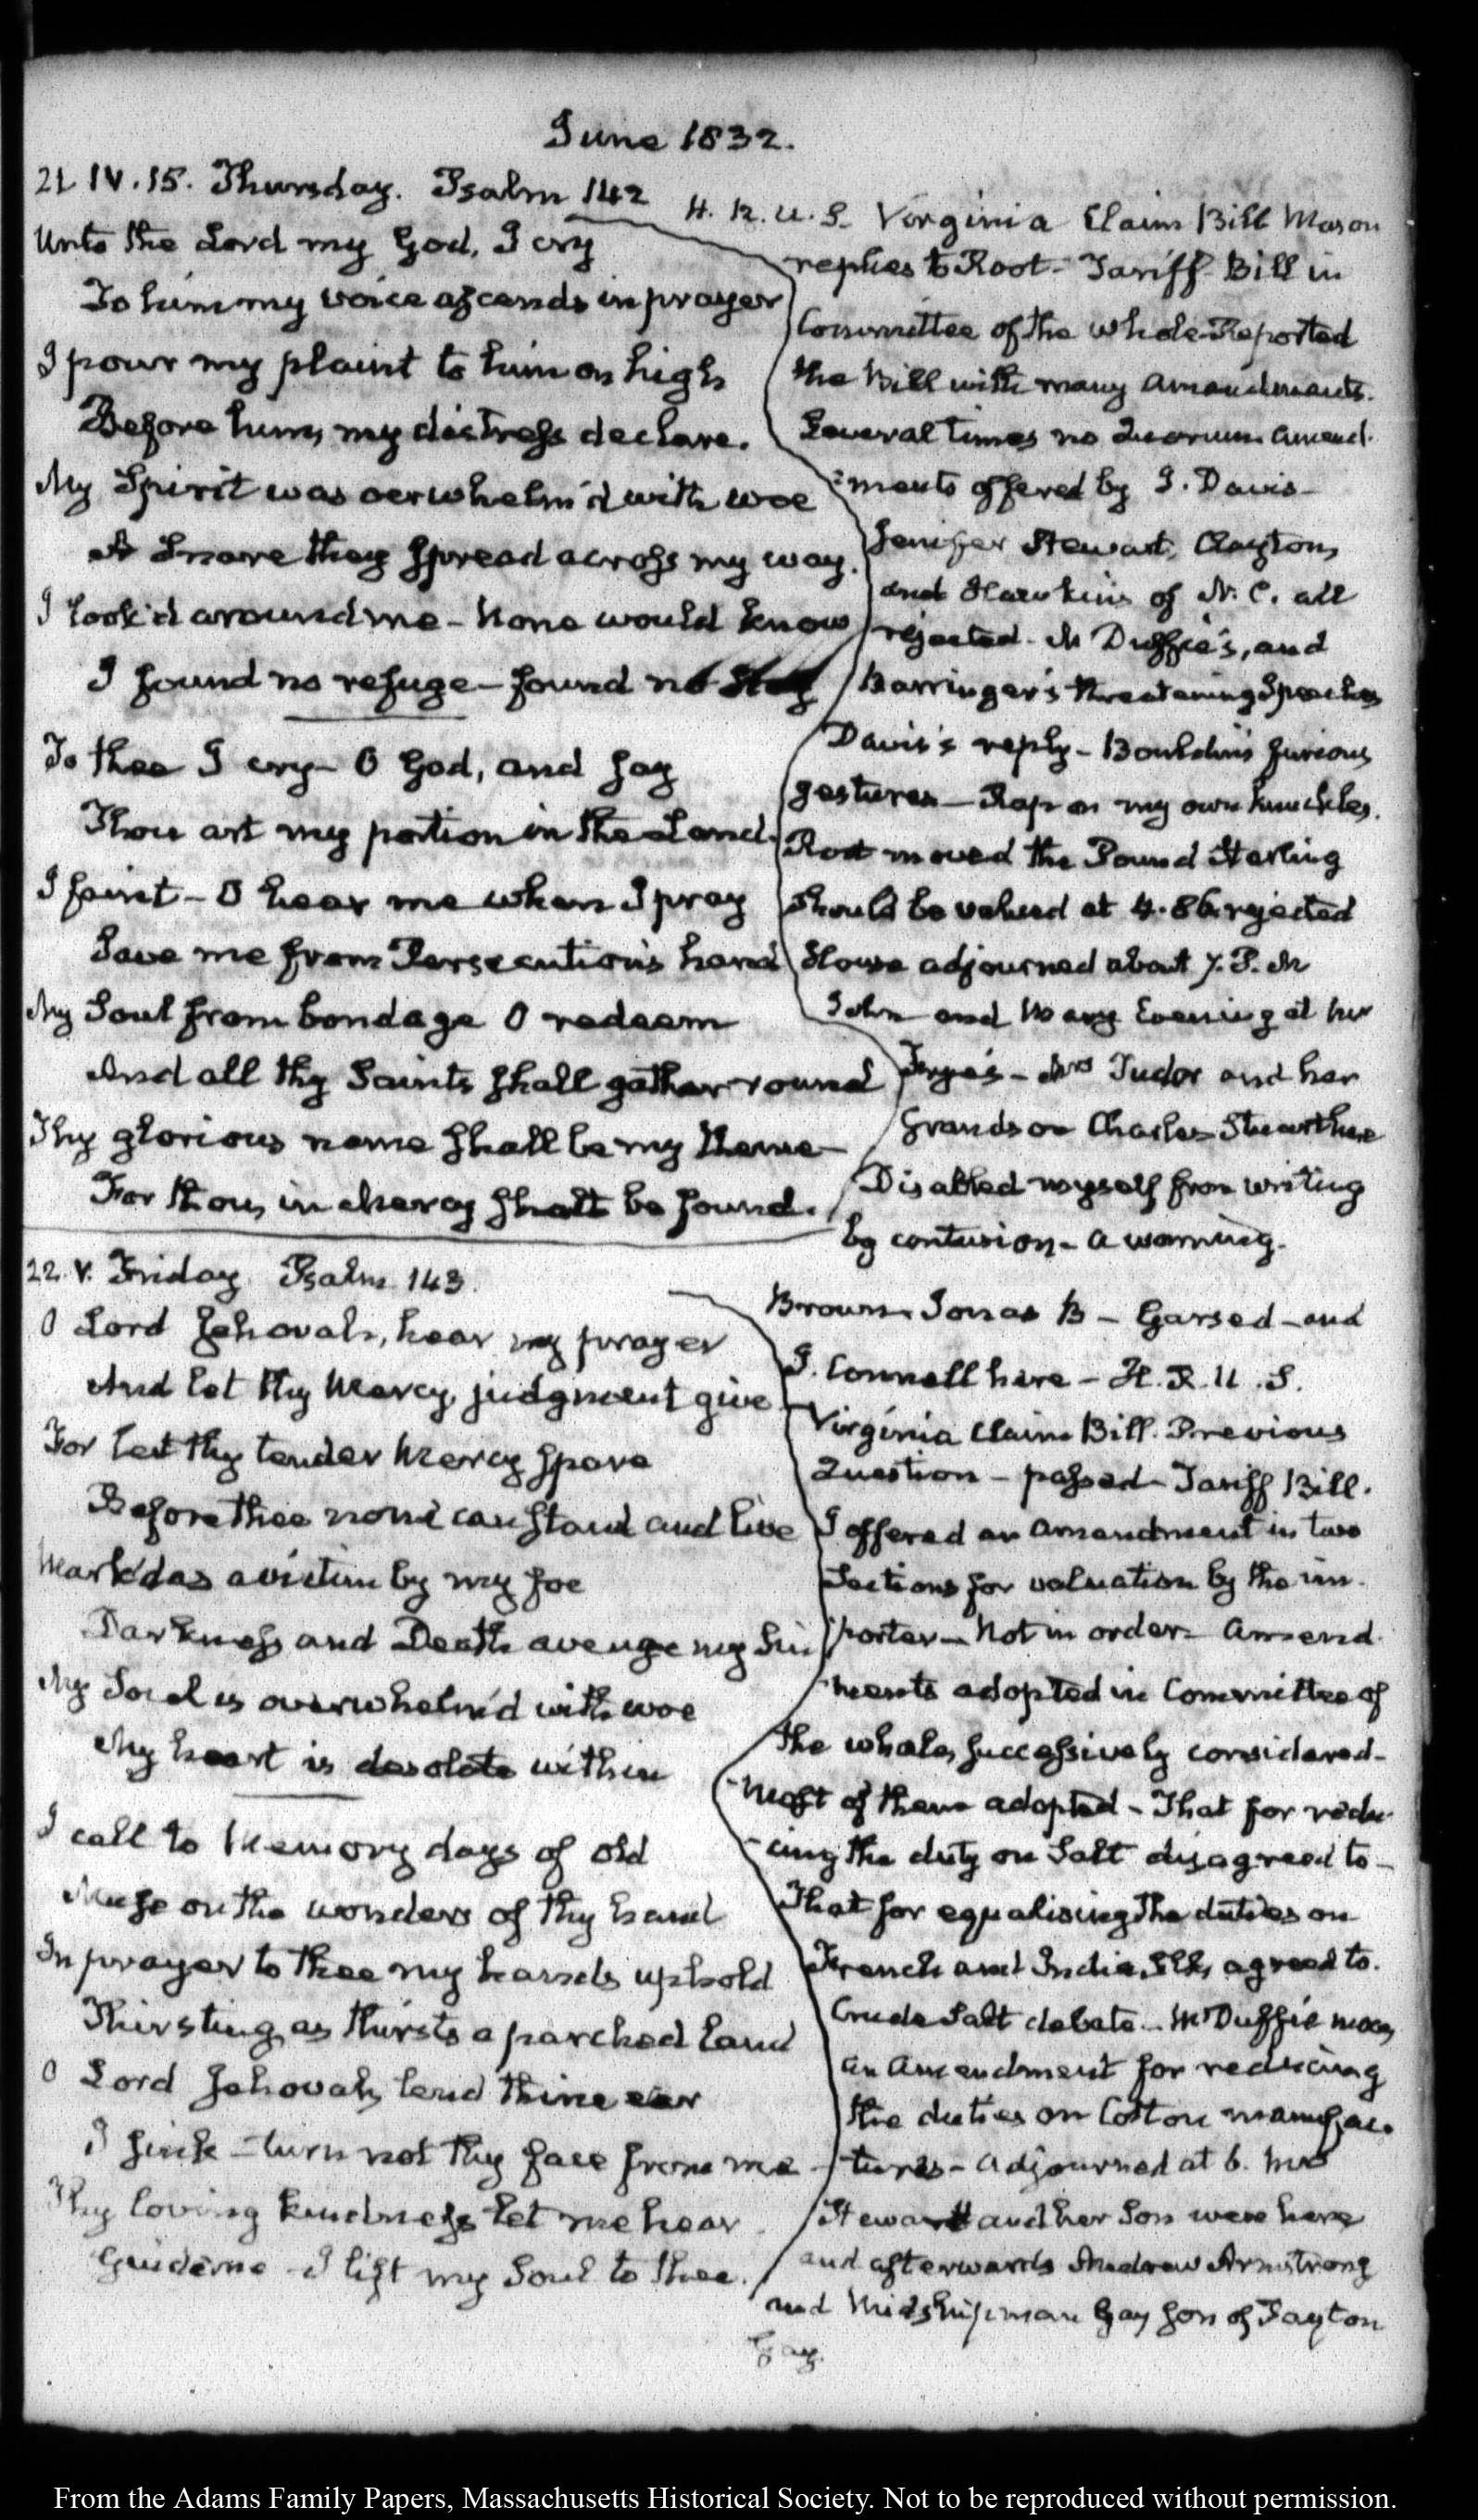 June 1832.
21 IV. 15. Thursday. Psalm 142
Unto the Lord my God, I cry
To him my voice ascends in prayer
I pour my plaint to him on high
Before him, my distress declare.
My Spirit was oerwhelm'd with woe
A Snare they spread across my way.
I look'd around me - None would know
I found no refuge - found no stay
To thee I cry - O God, and say
Thou art my portion in the Land.
I faint - O hear me when I pray
Save me from Persecution's hand
My Soul from bondage O redeem
And all thy Saints shall gather round
Thy glorious name shall be my theme -
For thou, in mercy shalt be found.
H. R. U. S. Virginia Claim Bill Mason
replies to Root - Tariff Bill in
Committee of the whole - Reported
the Bill with many amendments.
Several times no Quorum. Amend-
ments offered by J. Davis -
Jenifer Stewart, Clayton,
and Hawkins of N. C. all
rejected - McDuffie's, and
Barringer's threatening Speeches
Davis's reply - Bouldin's furious
gestures - Rap on my own knuckles.
Root moved the Pound Sterling
should be valued at 4.86. rejected
House adjourned about 7. P. M
John and Mary Evening at
- Mrs Tudor and her
Grandson Charles Stewart here
Disabled myself from writing
by contusion - a warning.
22. V. Friday. Psalm 143.
O Lord Jehovah, hear my prayer
And let thy Mercy, judgment give
For let thy tender Mercy spare
Before thee none can stand and live
Mark'd as a victim by my foe
Darkness and Death avenge my Sin
My Soul is overwhelm'd with woe
My heart is desolate within
I call to Memory days of old
Muse on the wonders of thy hand
In prayer to thee my hands uphold
Thirsting, as thirsts a parched land
O Lord Jehovah, lend thine ear
I sink - turn not thy face from me -
Thy loving kindness let me hear
Guide me - I lift my Soul to thee.
Brown Jonas B - Garsed - and
J. Connell here - H. R. U. S.
Virginia Claim Bill. Previous
Question - passed - Tariff Bill.
I offered an amendment in two
Sections for valuation by the im-
porter - Not in order - Amend-
ments adopted in Committee of
the whole, successively considered -
Most of them adopted - That for redu-
cing the duty on Salt disagreed to -
That for equalising the duties on
French and India Silks, agreed to.
Crude Salt debate - McDuffie moves
an amendment for reducing
the duties on Cotton manufac-
tures - Adjourned at 6. Mrs
Stewart and her Son were here
and afterwards Andrew Armstrong
and Midshipman Gay son of Payton
Gay.
From the Adams Family Papers, Massachusetts Historical Society. Not to be reproduced without permission.